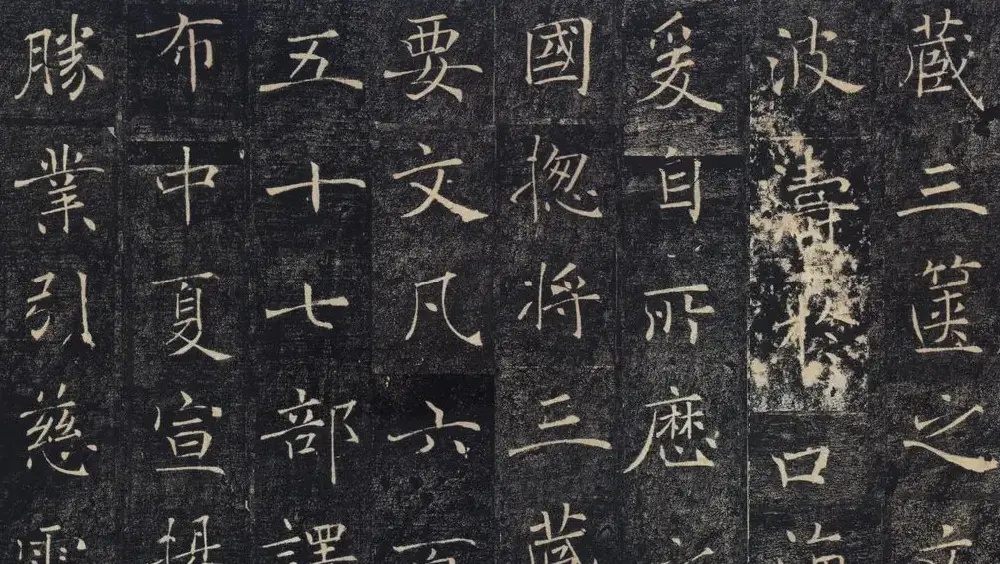 藏三篋之文
波濤於口海
爰自所歷
國揔將三藏
要文凡六百
五十七部譯
布中夏宣揚
勝業引慈雲